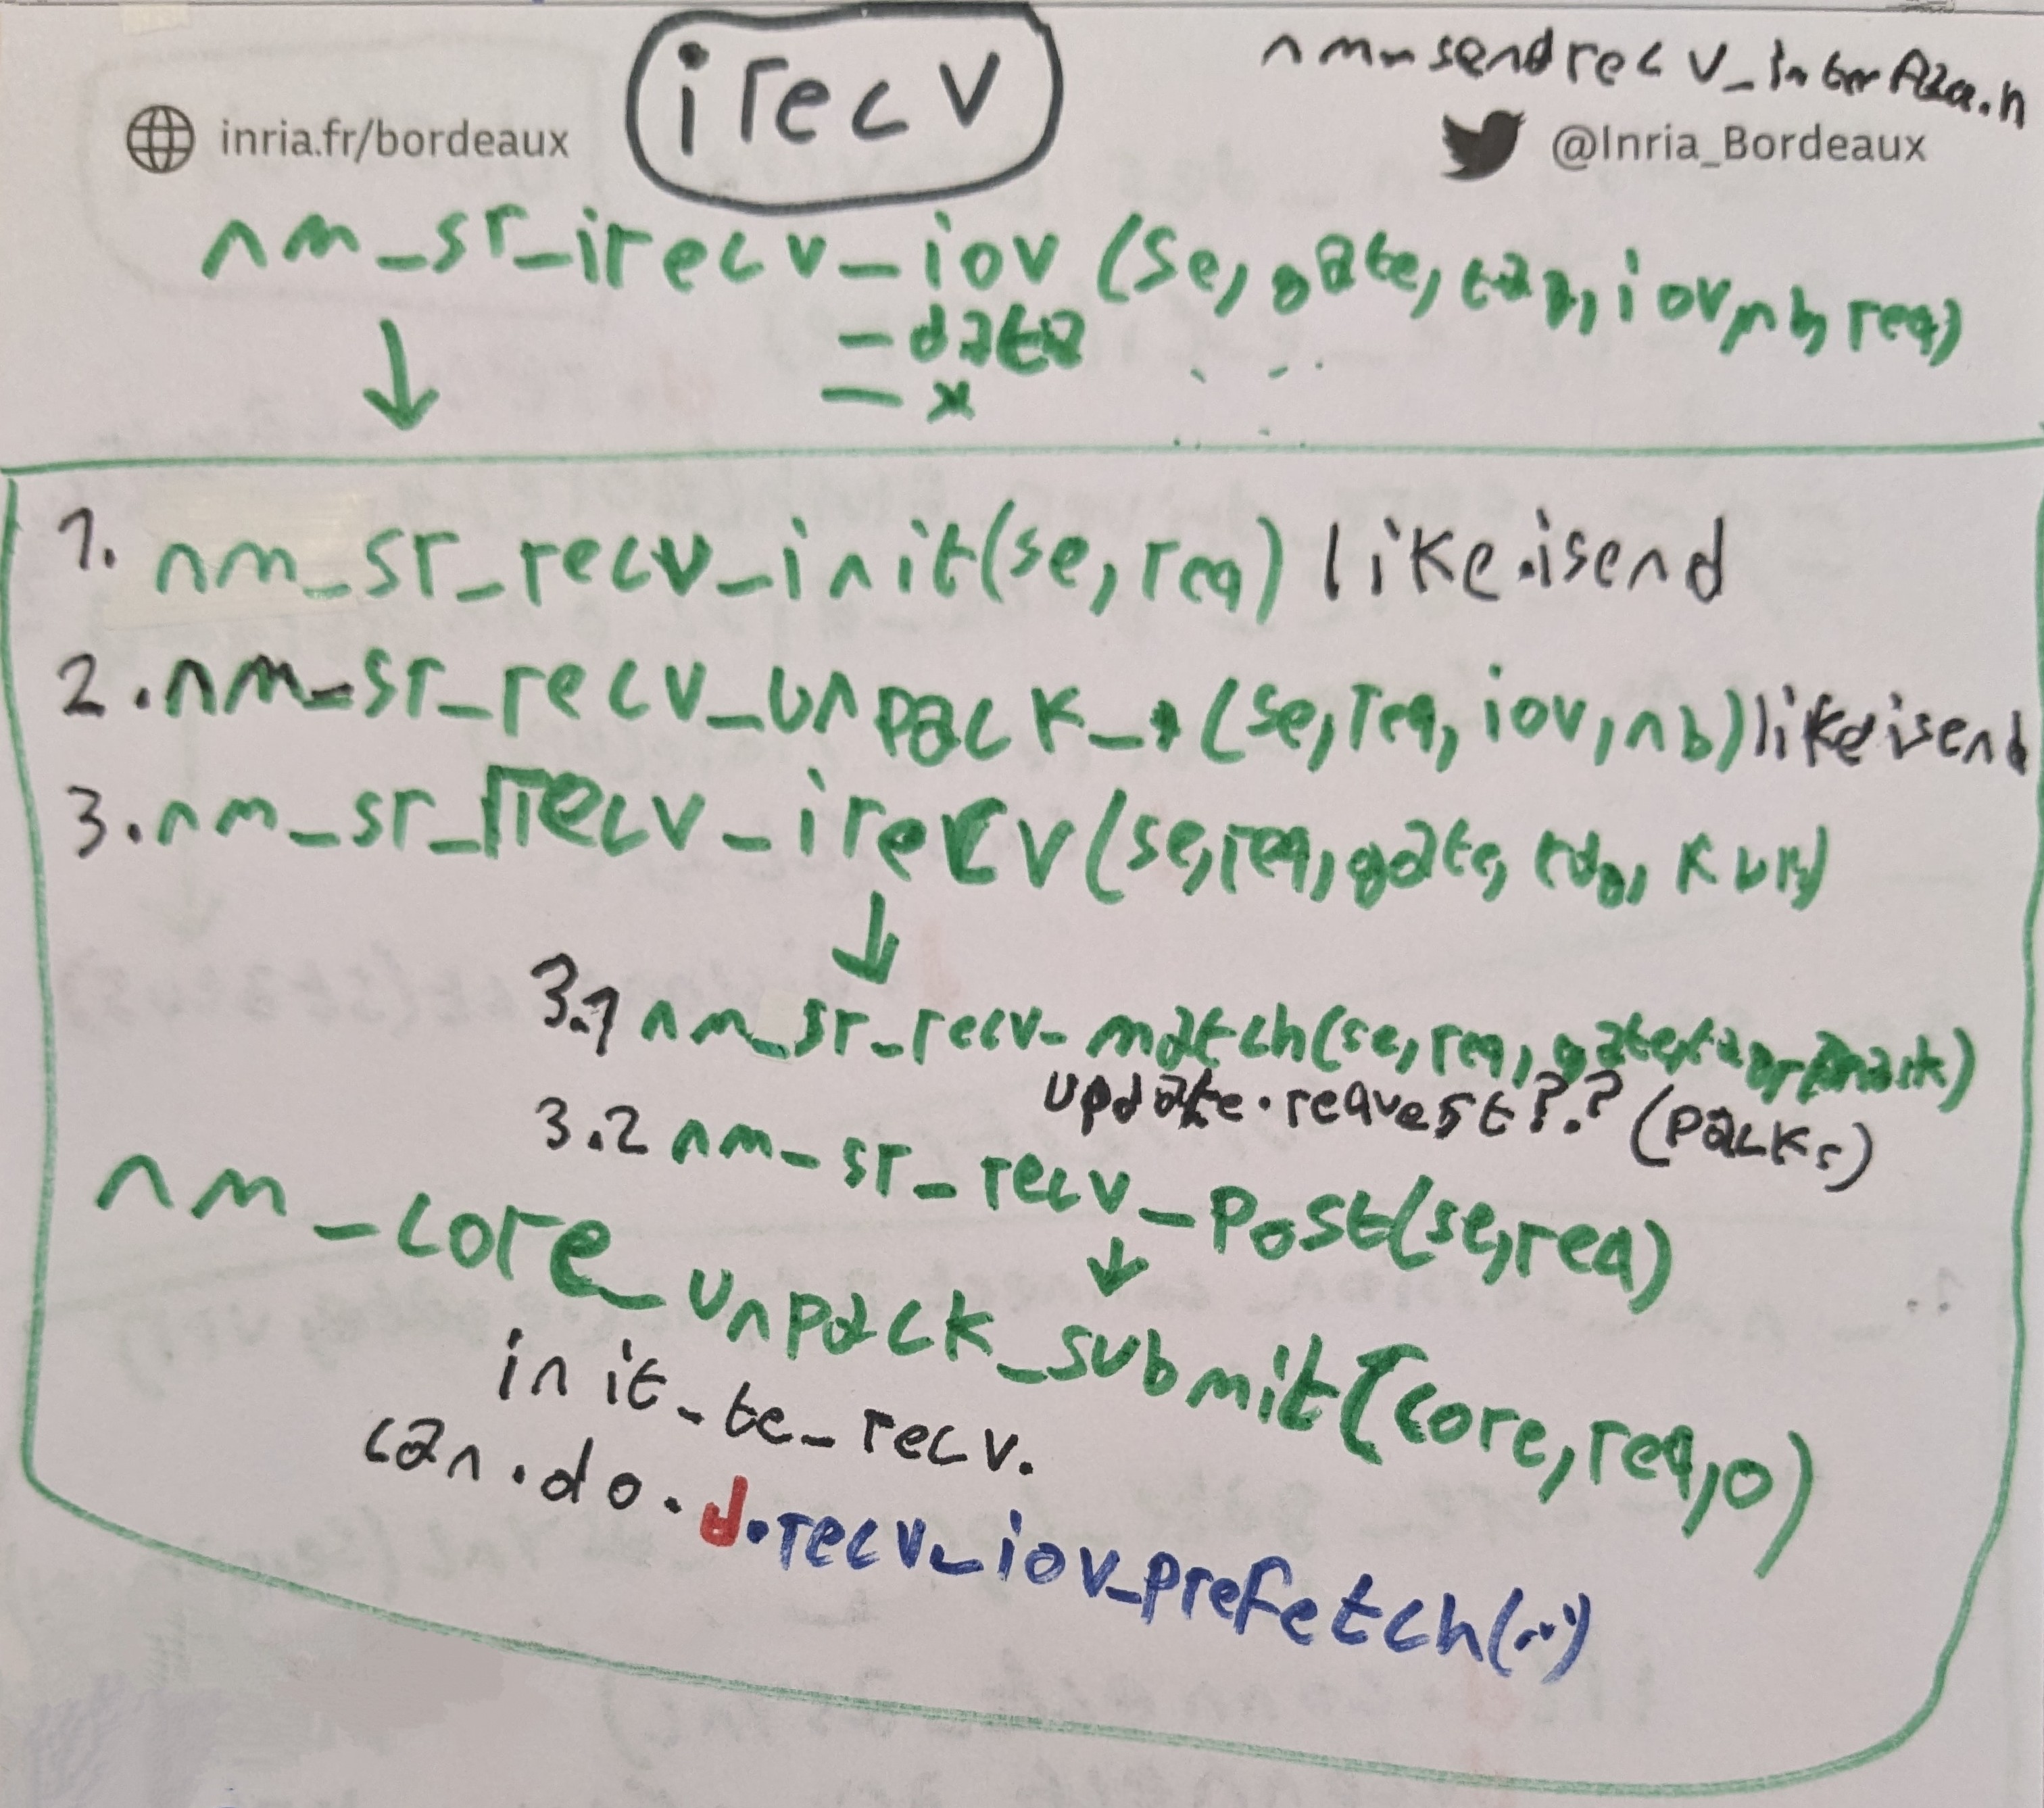 irecv
nm_sendrecv_interface.h
inria.fr/bordeaux
@Inria_Bordeaux
nm_sr_irecv_iov (se, gate, tag, iov, nb, req)
_data
_x
1. nm_sr_recv_init(se, req) like.isend
2. nm_sr_recv_unpack_*(se, req, iov, nb) like isend
3. nm_sr_recv_irecv(se, req, gate, tag,
3.1 nm_sr_recv_match(se, req, gate, tag, mask)
update.request?? (packs)
3.2 nm_sr_recv_post(se, req)
nm_core_unpack_submit(core, req, 0)
init_te_recv.
can.do.d.recv_iov_prefetch(...)